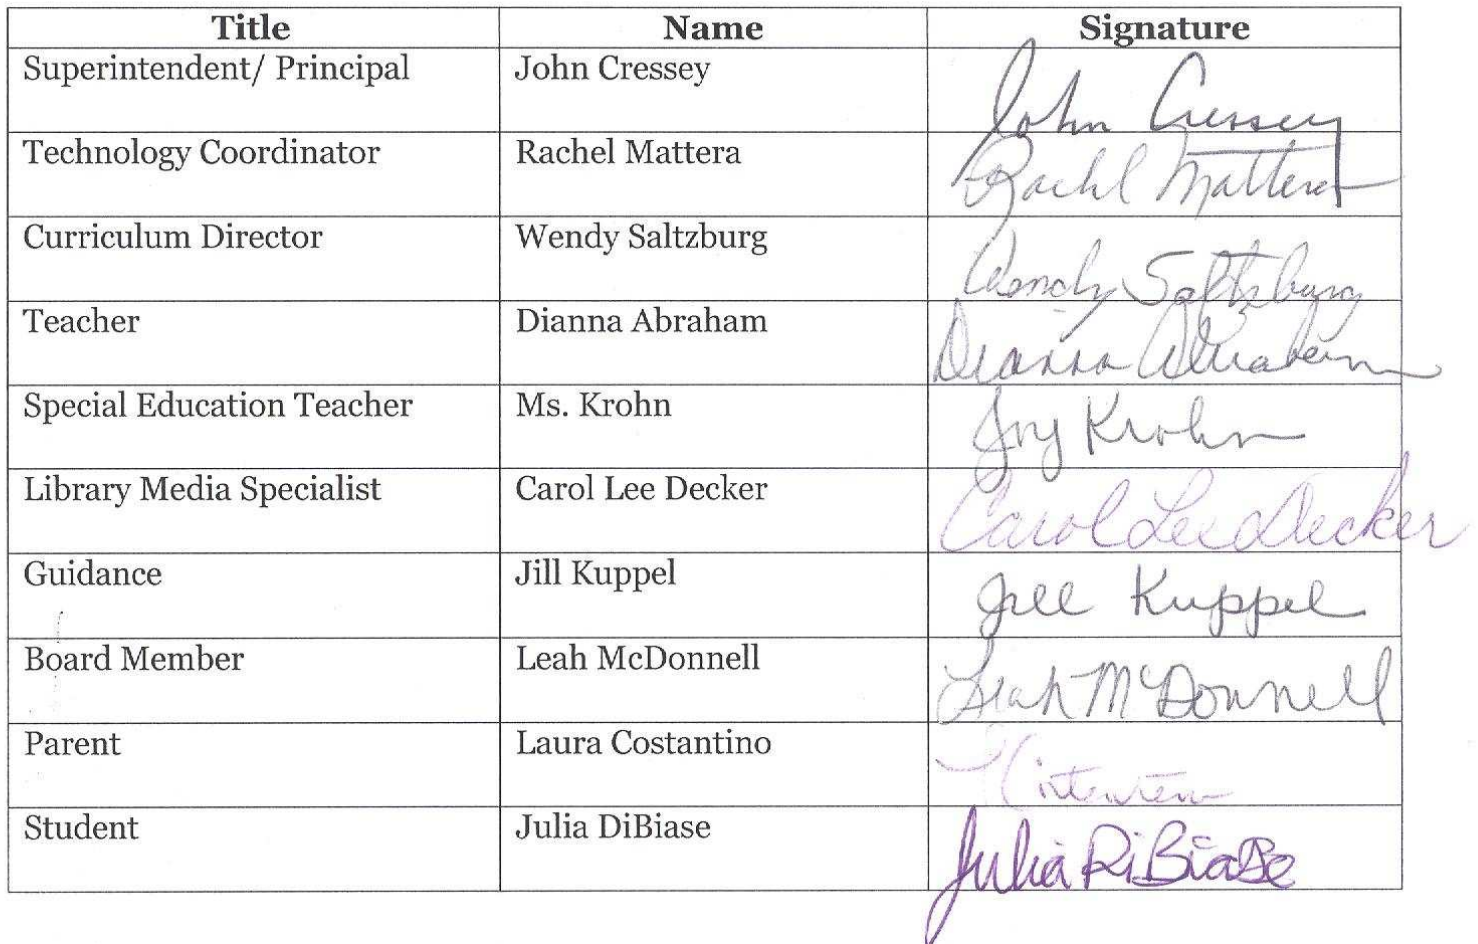 Title Name Signature
Superintendent/ Principal John Cressey John Cressey
Technology Coordinator Rachel Mattera Rachel Mattera
Curriculum Director Wendy Saltzburg Wendy Saltzburg
Teacher Dianna Abraham Dianna Abraham
Special Education Teacher Ms. Krohn Joy Krohn
Library Media Specialist Carol Lee Decker Carol Lee Decker
Guidance Jill Kuppel Jill Kuppel
Board Member Leah McDonnell Leah McDonnell
Parent Laura Costantino
Student Julia DiBiase Julia DiBiase